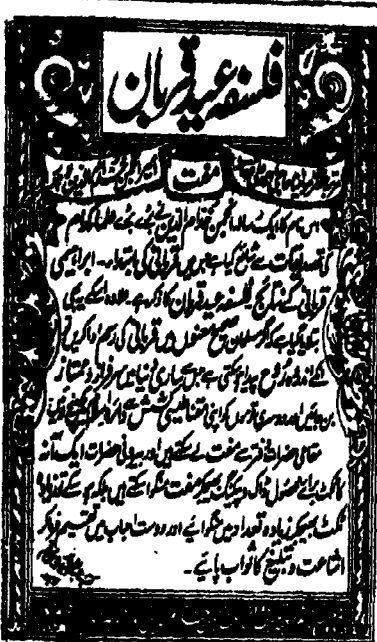 فلسفہ عید قربان
مفت
اس نام کا ایک رسالہ انجمن خدام الدین نے بڑے بڑے علماء کرام
کی تصدیقات سے شائع کیا ہے جس میں قربانی کی ابتداء۔ ابراہیمی
قربانی کے نتائج فلسفہ عید قربان کا ذکر ہے۔ علاوہ اسکے یہ بھی
بتایا گیا ہے کہ اگر مسلمان صحیح معنوں میں قربانی کی رسم ادا کریں تو
روح پیدا ہو سکتی ہے ساری دنیا میں سرفراز و ممتاز
بن جائیں اور دوسری قوموں کو اپنی مقناطیسی کشش سے دائرہ اسلام میں
مقامی حضرات دفتر سے مفت لے سکتے ہیں اور بیرونی حضرات ایک آنہ
کا ٹکٹ برائے محصول ڈاک و پیکنگ بھیجکر مفت منگوا سکتے ہیں
ٹکٹ بھیجکر زیادہ تعداد میں منگوائیے اور دوست احباب میں تقسیم فرما کر
اشاعت و تبلیغ کا ثواب پائیے۔